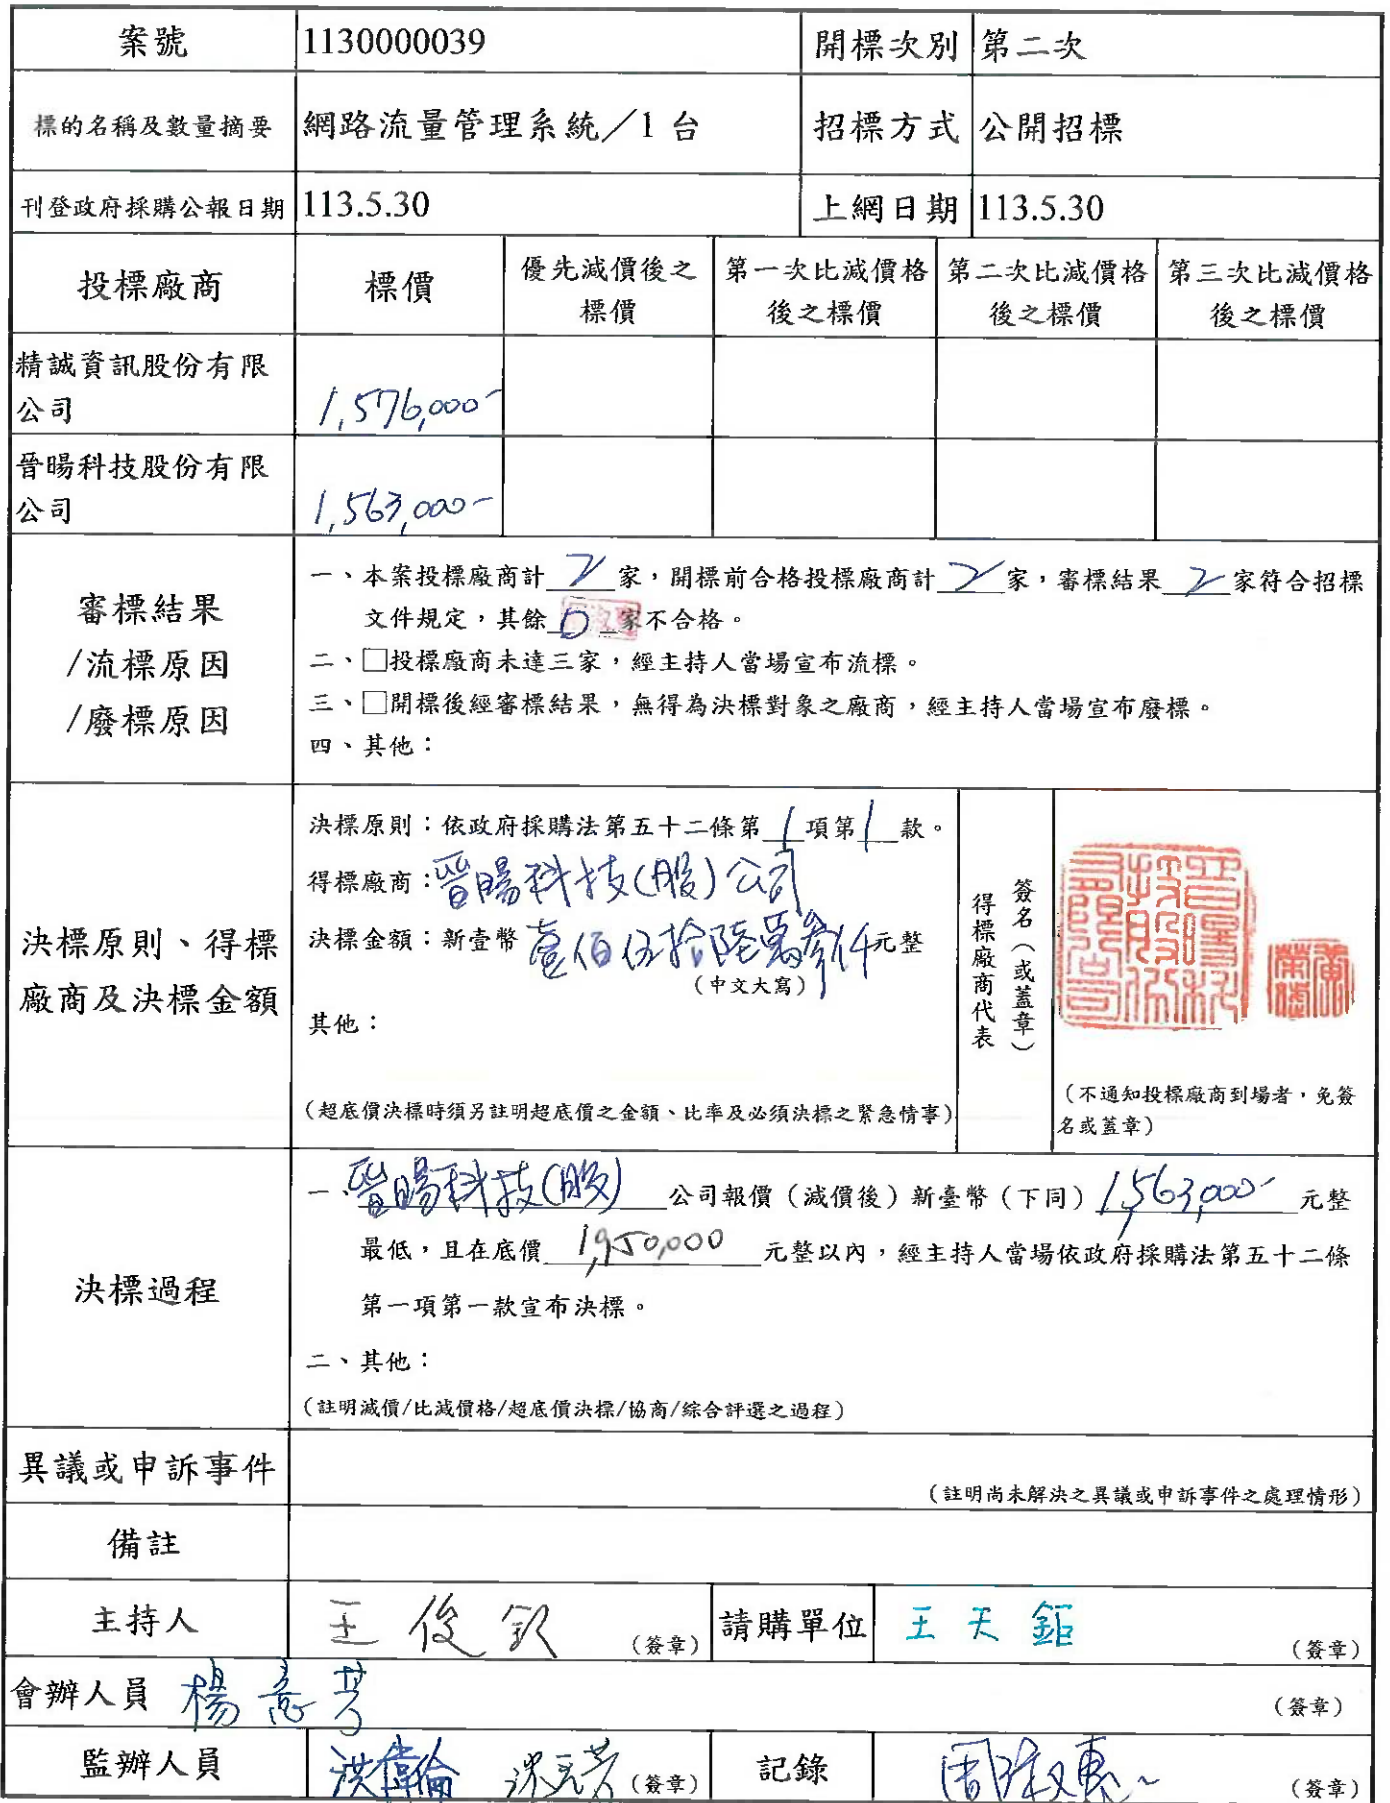 案號 1130000039 開標次別 第二次
標的名稱及數量摘要 網路流量管理系統／1 台 招標方式 公開招標
刊登政府採購公報日期 113.5.30 上網日期 113.5.30
投標廠商 標價 優先減價後之標價 第一次比減價格後之標價 第二次比減價格後之標價 第三次比減價格後之標價
精誠資訊股份有限公司 1,576,000-
晉暘科技股份有限公司 1,563,000-
審標結果
/流標原因
/廢標原因
一、本案投標廠商計 2 家，開標前合格投標廠商計 2 家，審標結果 2 家符合招標
文件規定，其餘 0 家不合格。
二、□投標廠商未達三家，經主持人當場宣布流標。
三、□開標後經審標結果，無得為決標對象之廠商，經主持人當場宣布廢標。
四、其他：
決標原則、得標
廠商及決標金額
決標原則：依政府採購法第五十二條第 1 項第 1 款。
得標廠商：晉暘科技(股)公司
決標金額：新壹幣 壹佰伍拾陸萬參仟元整
（中文大寫）
其他：
（超底價決標時須另註明超底價之金額、比率及必須決標之緊急情事）
得標廠商代表
簽名（或蓋章）
（不通知投標廠商到場者，免簽
名或蓋章）
決標過程
一、晉暘科技(股) 公司報價（減價後）新臺幣（下同） 1,563,000- 元整
最低，且在底價 1,950,000 元整以內，經主持人當場依政府採購法第五十二條
第一項第一款宣布決標。
二、其他：
（註明減價/比減價格/超底價決標/協商/綜合評選之過程）
異議或申訴事件
（註明尚未解決之異議或申訴事件之處理情形）
備註
主持人 王俊欽 （簽章） 請購單位 王天鉅 （簽章）
會辦人員 楊意芳 （簽章）
監辦人員 洪偉倫 （簽章） 記錄 （簽章）